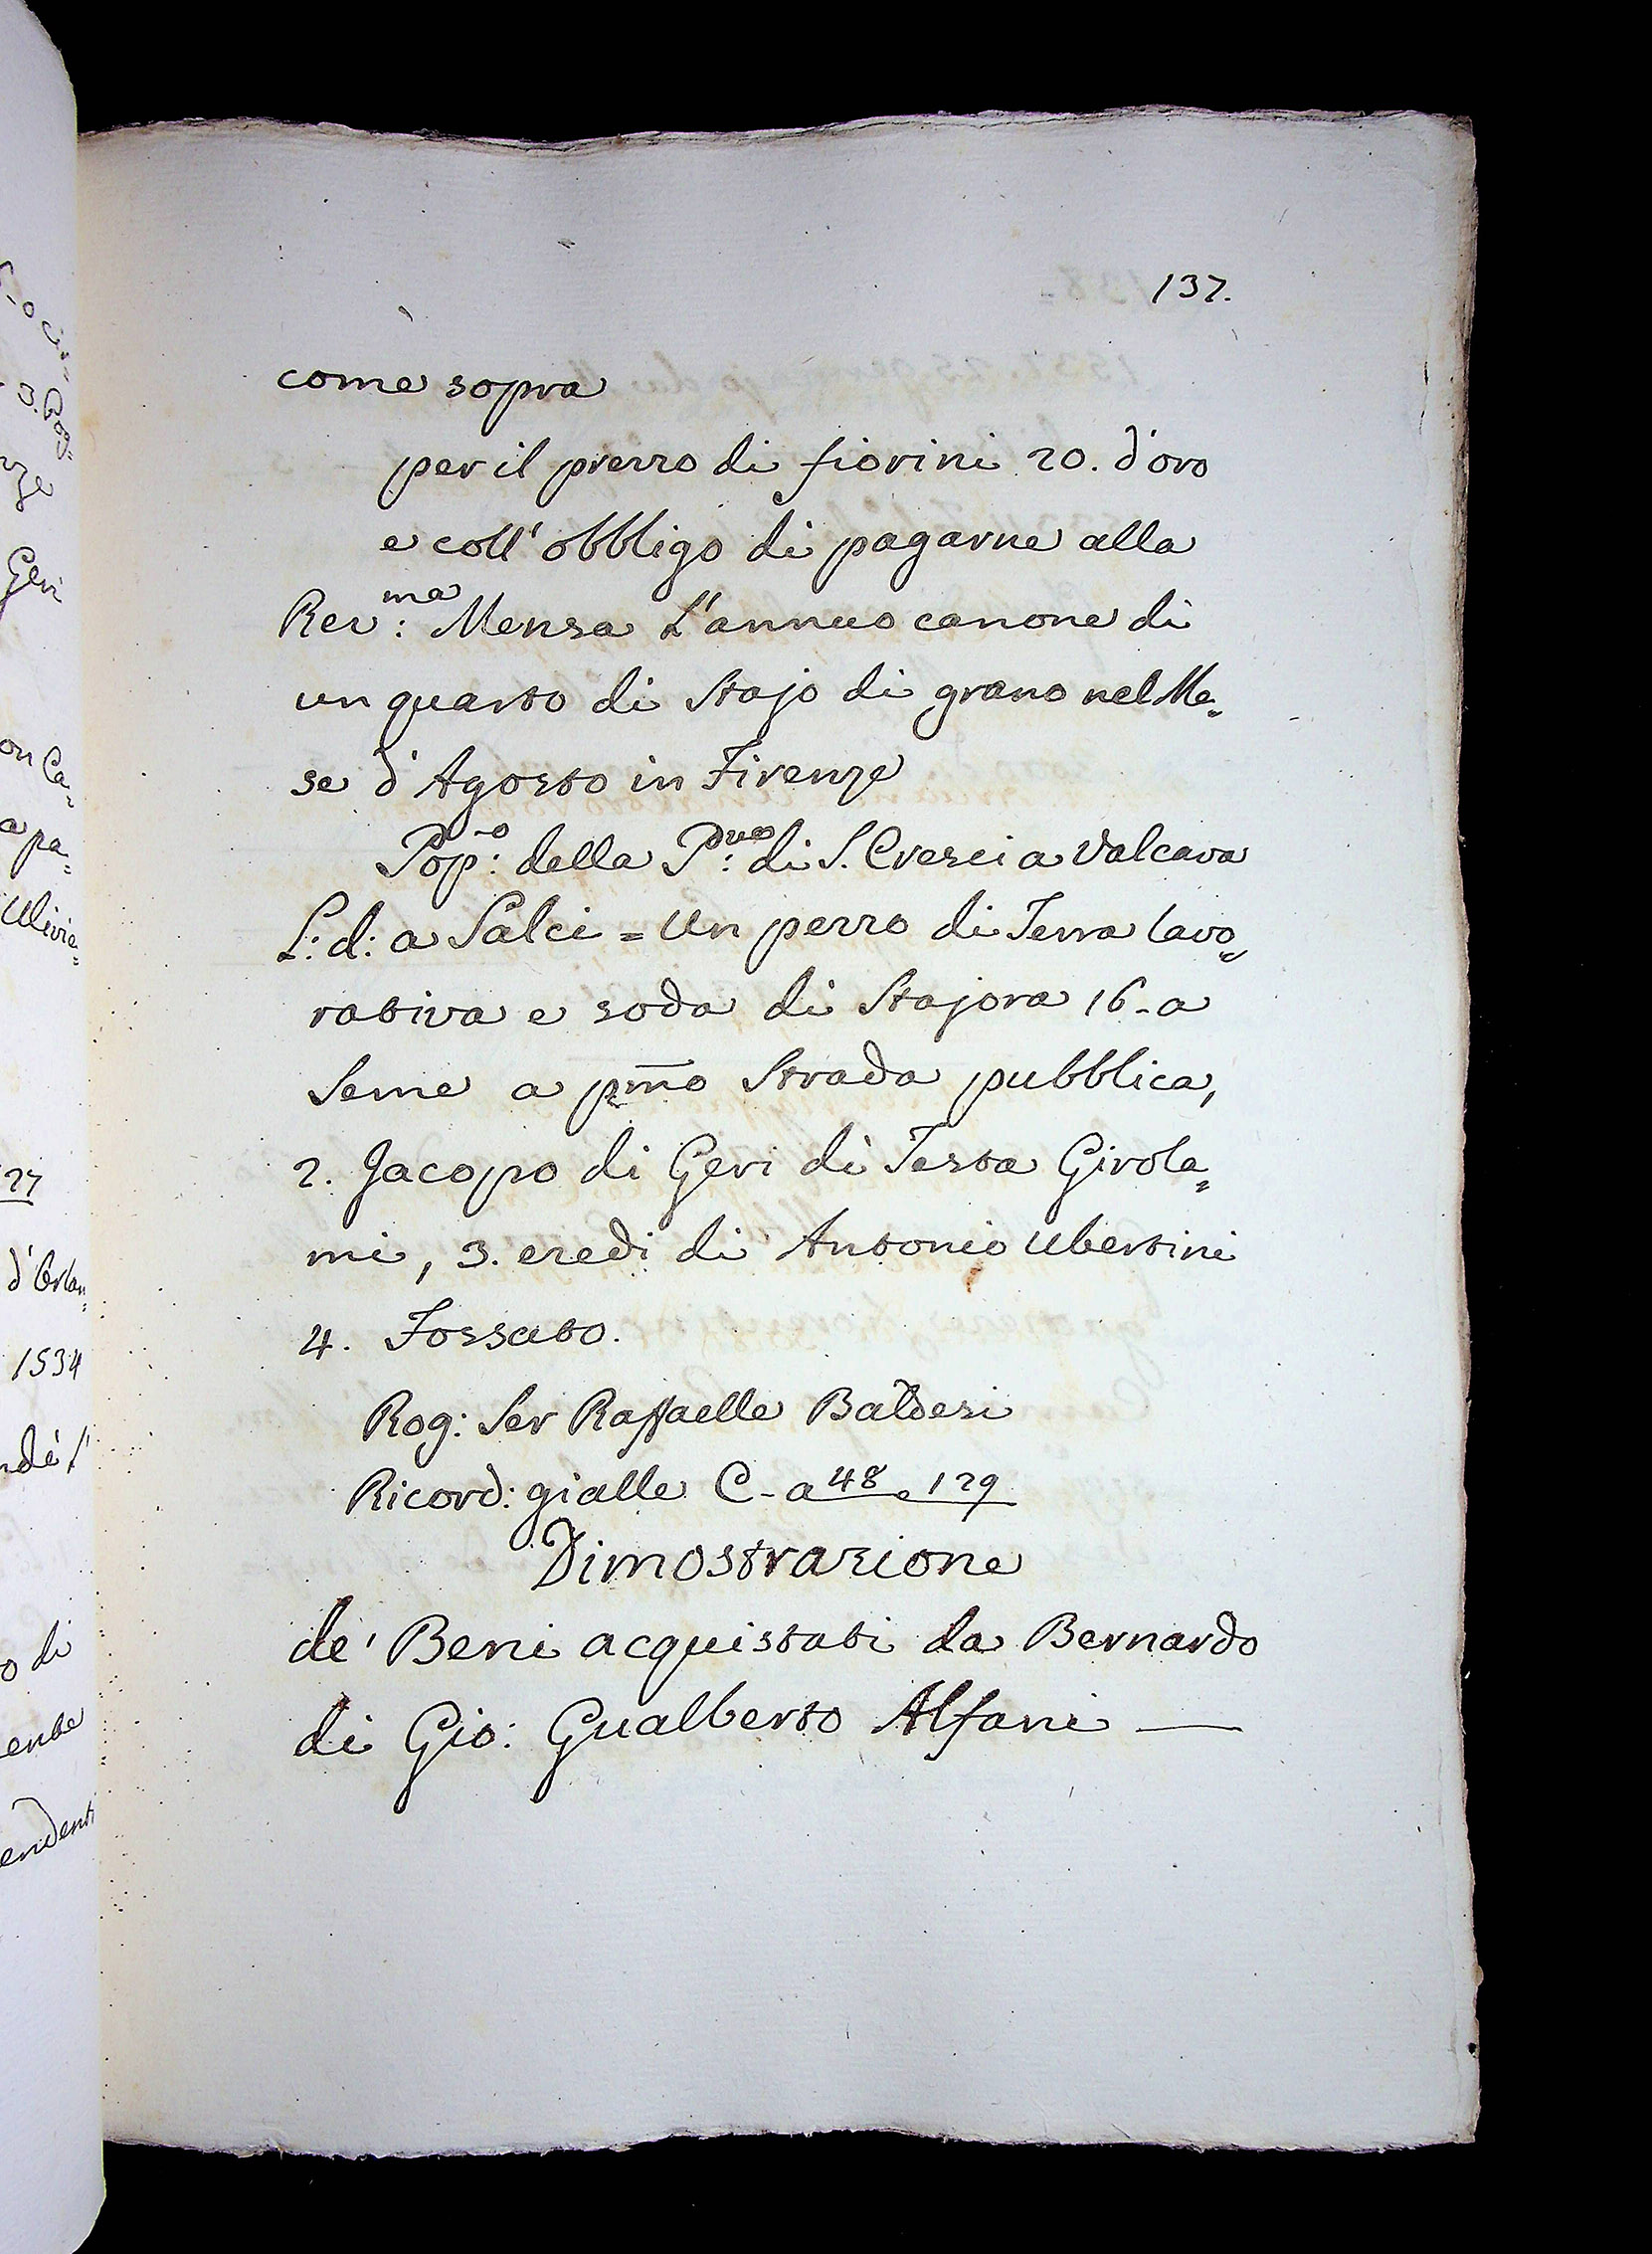 137.
come sopra
per il prezzo di fiorini 20. d'oro
e coll' obbligo di pagarne alla
Rev:ma Mensa L'annuo canone di
un quarto di Stajo di grano nel Me=
se d'Agosto in Firenze
Pop:o della P:ve di S. Cresci a Valcava
L: d: a Salci = Un pezzo di Terra lavo=
rativa e soda di Stajora 16 - a
Seme a pmo Strada pubblica,
2. Jacopo di Geri di Testa Girola=
mi, 3. eredi di Antonio Ubertini
4. Fossato.
Rog: Ser Raffaelle Baldesi
Ricord: gialle C - a 48 e 129
Dimostrazione
de' Beni acquistati da Bernardo
di Gio: Gualberto Alfani —
3. Rog=
Geri
on Ca=
a pa=
Ulivie=
27
d'Orlan=
1534
o di
endenti